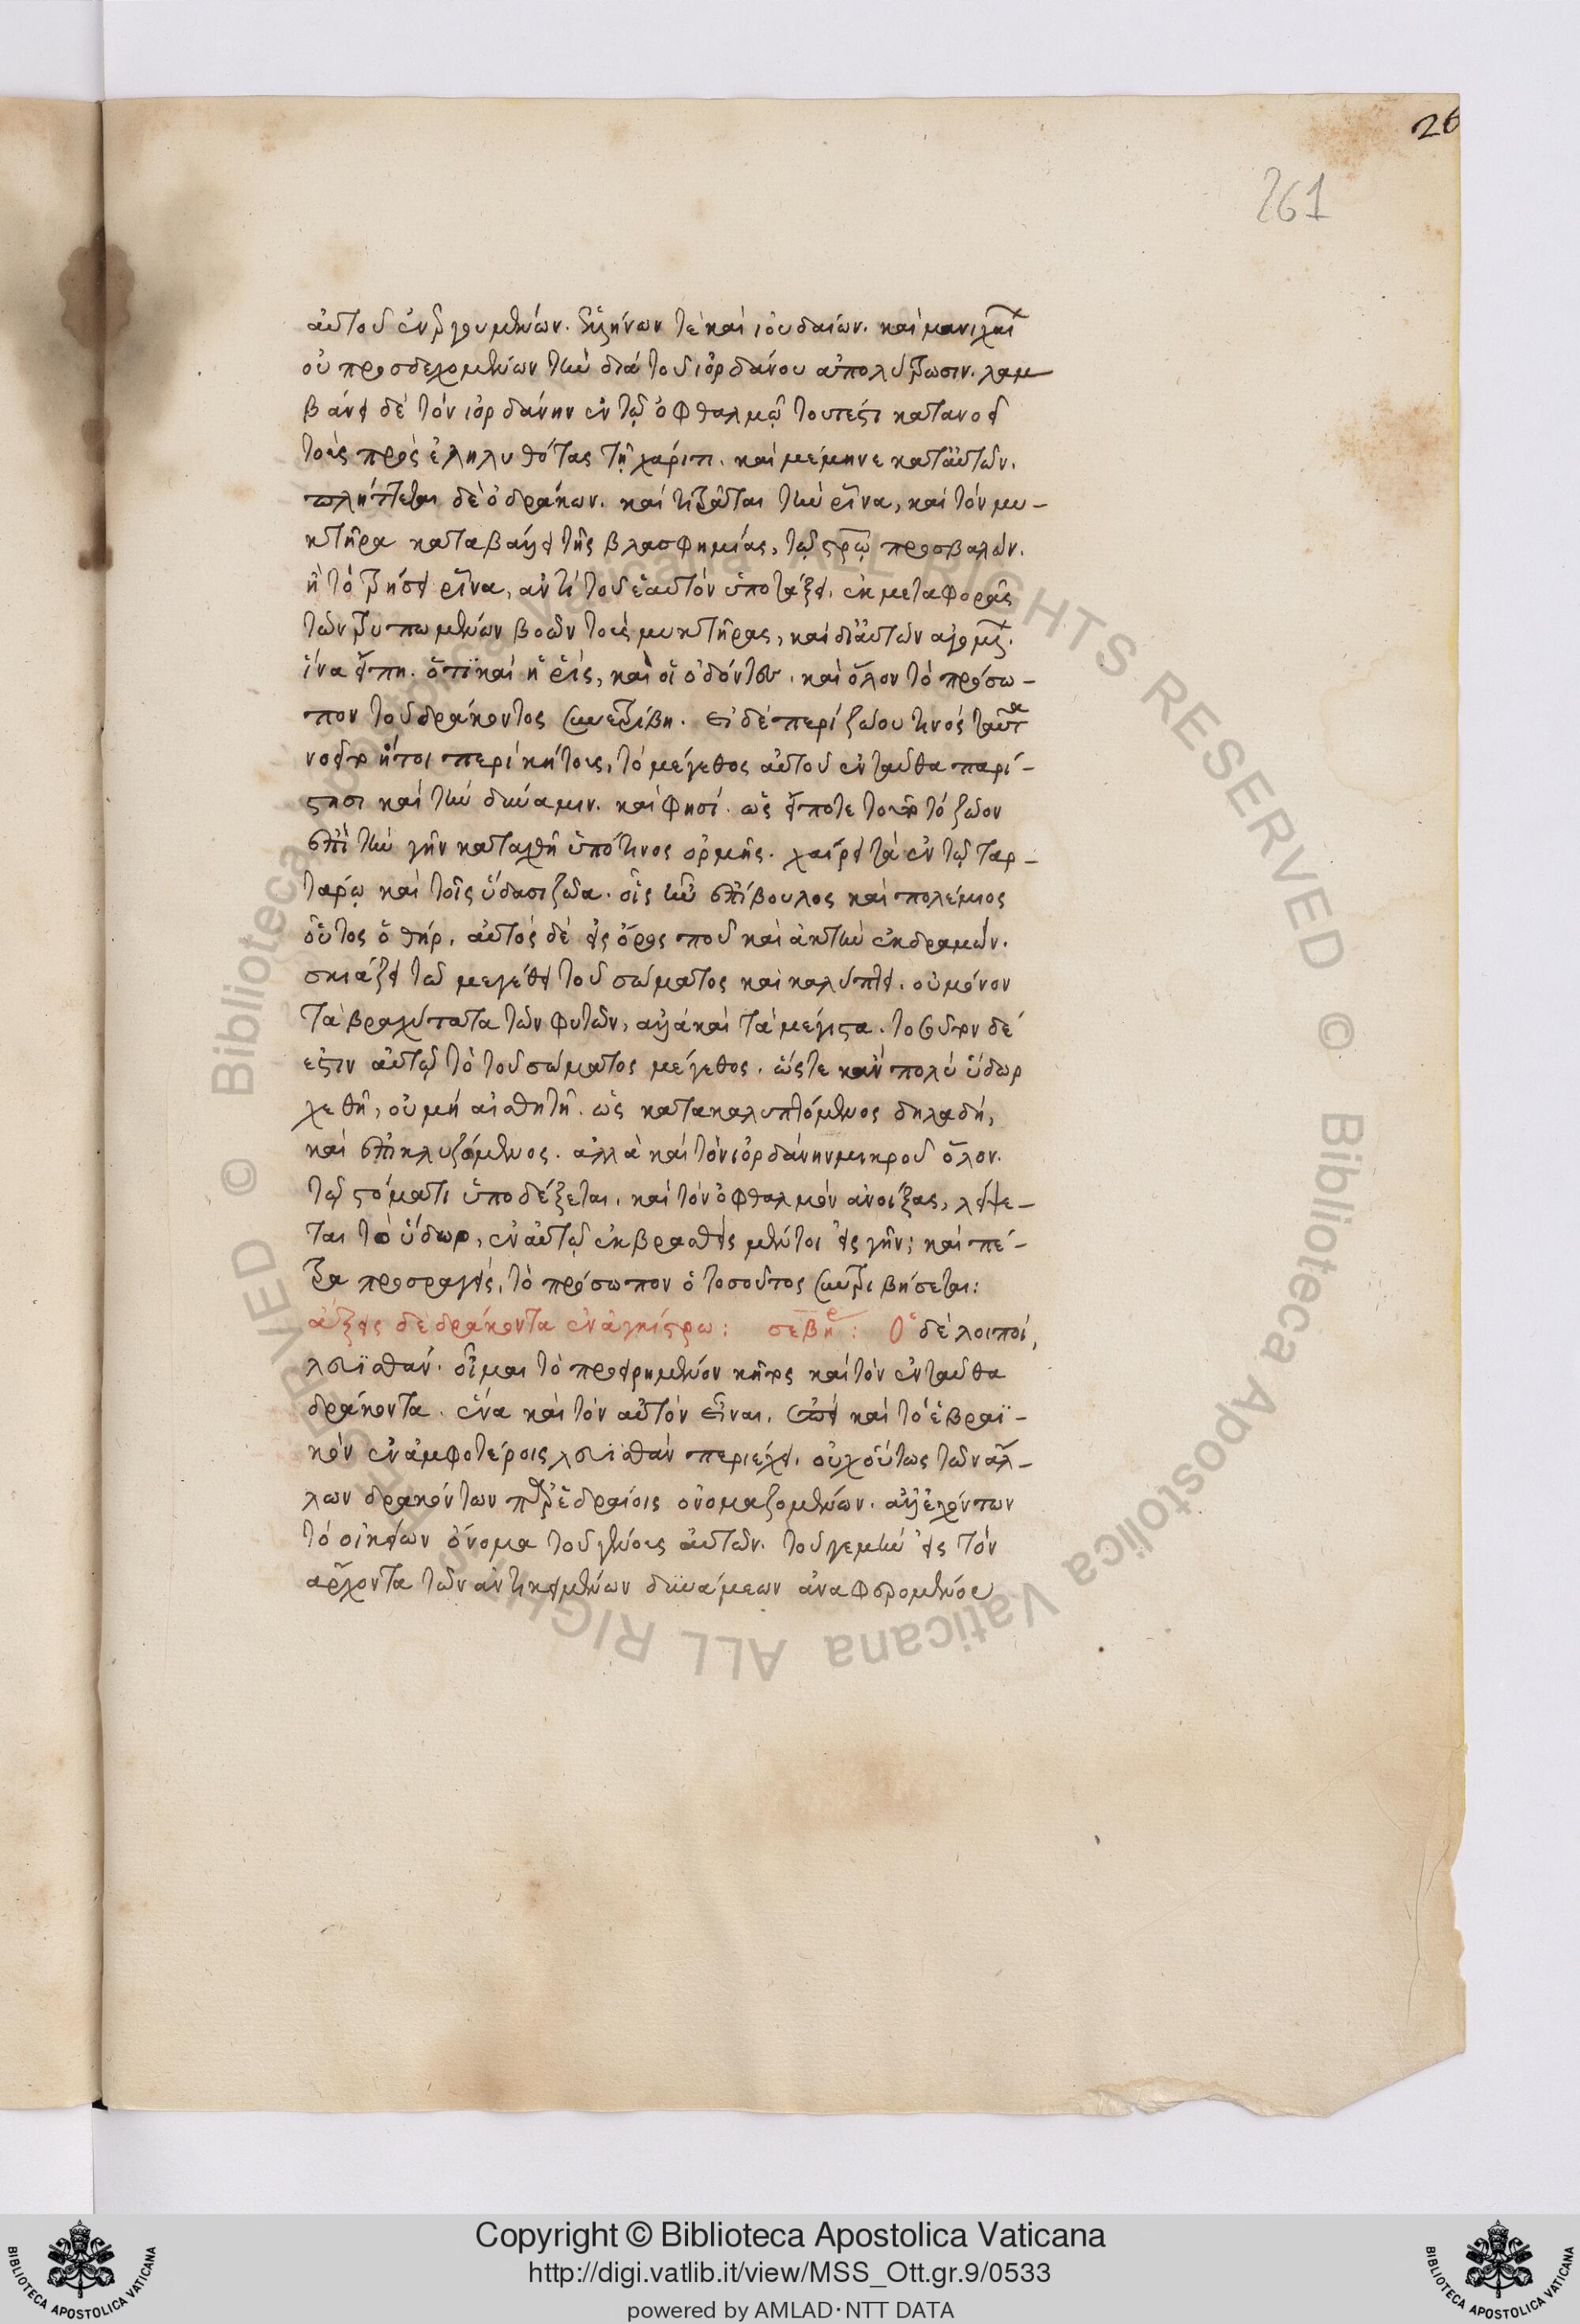 26
261
αὐτοῦ ἐνεργουμένων. ἑλλήνων τὲ καὶ ἰουδαίων. καὶ μανιχαί
οὐ προσδεχομένων τὴν διὰ τοῦ ἰορδάνου ἀπολύτρωσιν. λαμ
βάνει δὲ τὸν ἰορδάνην ἐν τῷ ὀφθαλμῷ τουτέστι κατανοεῖ
τοὺς προσεληλυθότας τῇ χάριτι. καὶ μέμηνε κατ' αὐτῶν.
πλήττεται δὲ ὁ δράκων. καὶ τιτρᾶται τὴν ῥῖνα, καὶ τὸν μυ-
κτῆρα καταβάλλει τῆς βλασφημίας, τῷ στρω προσβαλών.
ἢ τὸ τρήσει ῥῖνα, ἀντὶ τοῦ ἑαυτὸν ὑποτάξει. ἐκ μεταφορᾶς
τῶν τρυπωμένων βοῶν τοὺς μυκτῆρας, καὶ δι' αὐτῶν ἀγομέν
ἵνα εἴπη. ὅτι καὶ ἡ ῥὶς, καὶ οἱ ὀδόντες. καὶ ὅλον τὸ πρόσω-
πον τοῦ δράκοντος συνετρίβη. εἰ δὲ περὶ ζώου τινὸς ταῦτα
νοεῖται ἤτοι περὶ κήτους, τὸ μέγεθος αὐτοῦ ἐνταῦθα παρί-
στησι καὶ τὴν δύναμιν. καὶ φησί. ὡς εἴποτε τοῦτο τὸ ζῶον
ἐπὶ τὴν γῆν καταχθῆ ὑπό τινος ὁρμῆς. χαίρει τὰ ἐν τῷ ταρ-
ταρῳ καὶ τοῖς ὕδασι ζῶα. οἷς ἦν ἐπίβουλος καὶ πολέμιος
οὗτος ὁ θήρ. αὐτὸς δὲ εἰς ὄρος που καὶ ἀκτὴν ἐκδραμών.
σκιάζει τῶ μεγέθει τοῦ σώματος καὶ καλύπτει. οὐ μόνον
τὰ βραχύτατα τῶν φυτῶν, ἀλλὰ καὶ τὰ μέγιστα. τοσοῦτον δέ
ἐστιν αὐτῷ τὸ τοῦ σώματος μέγεθος. ὥστε κἂν πολὺ ὕδωρ
χεθῆ, οὐ μὴ αἰσθητῆ. ὡς κατακαλυπτόμενος δηλαδή,
καὶ ἐπικλυζόμενος. ἀλλὰ καὶ τὸν ἰορδάνην μικροῦ ὅλον.
τῷ στόματι ὑποδέξεται. καὶ τὸν ὀφθαλμὸν ἀνοίξας, λείψε-
ται τὸ ὕδωρ, ἐν αὐτῷ ἐκβρασθεὶς μέντοι εἰς γῆν; καὶ πέ-
τρα προσραγεὶς, τὸ πρόσωπον ὁ τοσοῦτος συντριβήσεται:
ἄξεις δὲ δράκοντα ἐν ἀγκίστρω: σεβήρ: Ὁ δὲ λοιποί,
λευϊαθάν. οἶμαι τὸ προειρημένον κῆτος καὶ τὸν ἐνταῦθα
δράκοντα. ἕνα καὶ τὸν αὐτὸν εἶναι. ἐπεὶ καὶ τὸ ἑβραϊ-
κὸν ἐν ἀμφοτέροις λευϊαθὰν περιέχει. οὐχ οὕτως τῶν ἄλ-
λων δρακόντων παρ' ἑβραίοις ὀνομαζομένων. ἀλλ' ἐχόντων
τὸ οἰκείων ὄνομα τοῦ γένους αὐτῶν. τοῦ γεμὴν εἰς τὸν
ἄρχοντα τῶν ἀντικειμένων δυνάμεων ἀναφερομένου
Copyright © Biblioteca Apostolica Vaticana
http://digi.vatlib.it/view/MSS_Ott.gr.9/0533
powered by AMLAD·NTT DATA